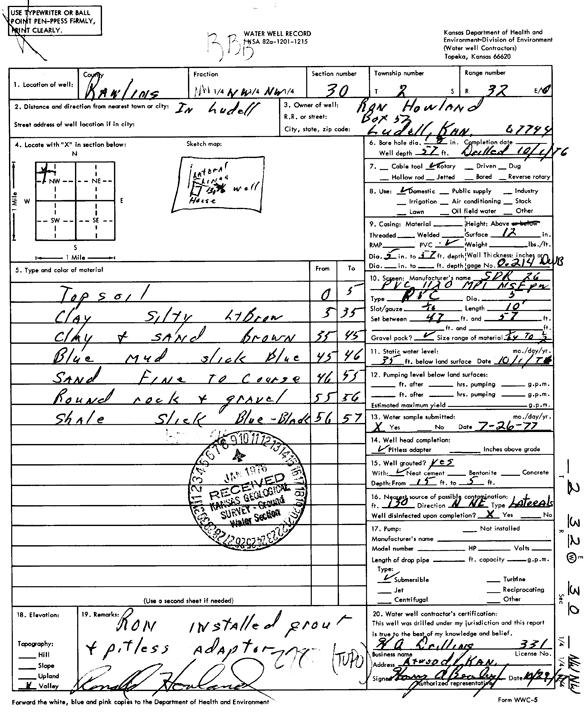 USE TYPEWRITER OR BALL
POINT PEN-PRESS FIRMLY,
PRINT CLEARLY.
BBB
WATER WELL RECORD
KSA 82a-1201-1215
Kansas Department of Health and
Environment-Division of Environment
(Water well Contractors)
Topeka, Kansas 66620
1. Location of well:
County
RAWLINS
Fraction
NW 1/4 NW 1/4 NW 1/4
Section number
30
Township number
T 2 S
Range number
R 32 E/W
2. Distance and direction from nearest town or city: In Ludell
Street address of well location if in city:
3. Owner of well: RON Howland
R.R. or street: Box 57
City, state, zip code: Ludell, KAN. 67744
4. Locate with "X" in section below:
N
NW NE
W E
SW SE
S
1 Mile
1 Mile
Sketch map:
Lateral
Lines
well
House
6. Bore hole dia. in. Completion date
Well depth 57 ft. Drilled 10/1/76
7. Cable tool ✓ Rotary Driven Dug
Hollow rod Jetted Bored Reverse rotary
8. Use: ✓ Domestic Public supply Industry
Irrigation Air conditioning Stock
Lawn Oil field water Other
9. Casing: Material Height: Above or below
Threaded Welded Surface 12 in.
RMP PVC ✓ Weight lbs./ft.
Dia. 5 in. to 57 ft. depth Wall Thickness: inches or
Dia. in. to ft. depth gage No. 0.214
5. Type and color of material
From To
Topsoil 0 5
Clay Silty Lt Brown 5 35
Clay + SAND Brown 35 45
Blue Mud slick Blue 45 46
SAND Fine To Course 46 55
Round rock + gravel 55 56
Shale Slick Blue-Black 56 57
10. Screen: Manufacturer's name SDR 26
PVC 1120 MPI NSF pw
Type PVC Dia. 5
Slot/gauze Length 10'
Set between 47 ft. and 57 ft.
ft. and ft.
Gravel pack? ✓ Size range of material
11. Static water level: mo./day/yr.
35 ft. below land surface Date 10/1/76
12. Pumping level below land surfaces:
ft. after hrs. pumping g.p.m.
ft. after hrs. pumping g.p.m.
Estimated maximum yield g.p.m.
13. Water sample submitted: mo./day/yr.
X Yes No Date 7-26-77
14. Well head completion:
✓ Pitless adapter Inches above grade
15. Well grouted? yes
With: ✓ Neat cement Bentonite Concrete
Depth: From 15 ft. to 5 ft.
16. Nearest source of possible contamination:
ft. 130 Direction N NE Type Laterals
Well disinfected upon completion? X Yes No
17. Pump: Not installed
Manufacturer's name
Model number HP Volts
Length of drop pipe ft. capacity g.p.m.
Type:
✓ Submersible Turbine
Jet Reciprocating
Centrifugal Other
JAN 1978
RECEIVED
KANSAS GEOLOGICAL
SURVEY - Ground
Water Section
(Use a second sheet if needed)
18. Elevation:
Topography:
Hill
Slope
Upland
X Valley
19. Remarks: RON installed grout
+ pitless adapter
(TOPO)
Ronald Howland
20. Water well contractor's certification:
This well was drilled under my jurisdiction and this report
is true to the best of my knowledge and belief.
H A Drilling 331
Business name License No.
Address Atwood, KAN.
Signed Date
Authorized representative
Forward the white, blue and pink copies to the Department of Health and Environment
Form WWC-5
T 2
R 32 W E
Sec 30
1/4 1/4 1/4
NW NW NW